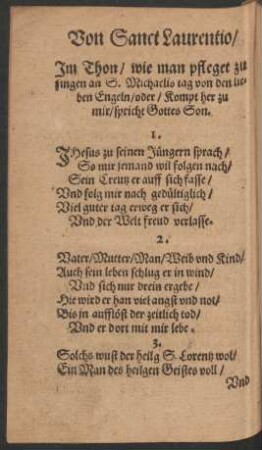 Von Sanct Laurentio/
Im Thon/ wie man pfleget zu
singen an S. Michaelis tag von den lie-
ben Engeln/oder/ Kompt her zu
mir/spricht Gottes Son.
1.
JHesus zu seinen Jüngern sprach/
So mir jemand wil folgen nach/
Sein Creutz er auff sich fasse/
Vnd folg mir nach gedültiglich/
Viel guter tag erweg er sich/
Vnd der Welt freud verlasse.
2.
Vater/Mutter/Man/Weib vnd Kind/
Auch sein leben schlug er in wind/
Vnd sich nur drein ergebe/
Hie wird er han viel angst vnd not/
Bis jn aufflöst der zeitlich tod/
Vnd er dort mit mir lebe.
3.
Solchs wust der heilg S. Lorentz wol/
Ein Man des heilgen Geistes voll/
Vnd